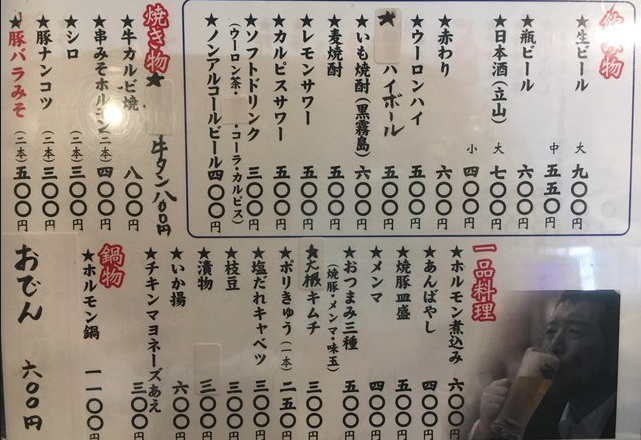 飲み物
★生ビール 大 九〇〇円
中 五五〇円
★瓶ビール 六〇〇円
★日本酒(立山) 大 七〇〇円
小 四〇〇円
★赤わり 六〇〇円
★ウーロンハイ 五〇〇円
★ハイボール 五〇〇円
★いも焼酎(黒霧島) 六〇〇円
★麦焼酎 五〇〇円
★レモンサワー 五〇〇円
★カルピスサワー 五〇〇円
★ソフトドリンク 三〇〇円
(ウーロン茶・コーラ・カルピス)
★ノンアルコールビール 四〇〇円
焼き物
★牛タン 八〇〇円
★牛カルビ焼 八〇〇円
★串みそホルモン(二本) 四〇〇円
★シロ (二本) 三〇〇円
★豚ナンコツ (二本) 三〇〇円
★豚バラみそ (二本) 五〇〇円
一品料理
★ホルモン煮込み 六〇〇円
★あんばやし 四〇〇円
★焼豚皿盛 五〇〇円
★メンマ 四〇〇円
★おつまみ三種 五〇〇円
(焼豚・メンマ・味玉)
★大根キムチ 三〇〇円
★ポリきゅう(一本) 二五〇円
★塩だれキャベツ 三〇〇円
★枝豆 三〇〇円
★漬物 三〇〇円
★いか揚 六〇〇円
★チキンマヨネーズあえ 三〇〇円
鍋物
★ホルモン鍋 一一〇〇円
おでん 六〇〇円